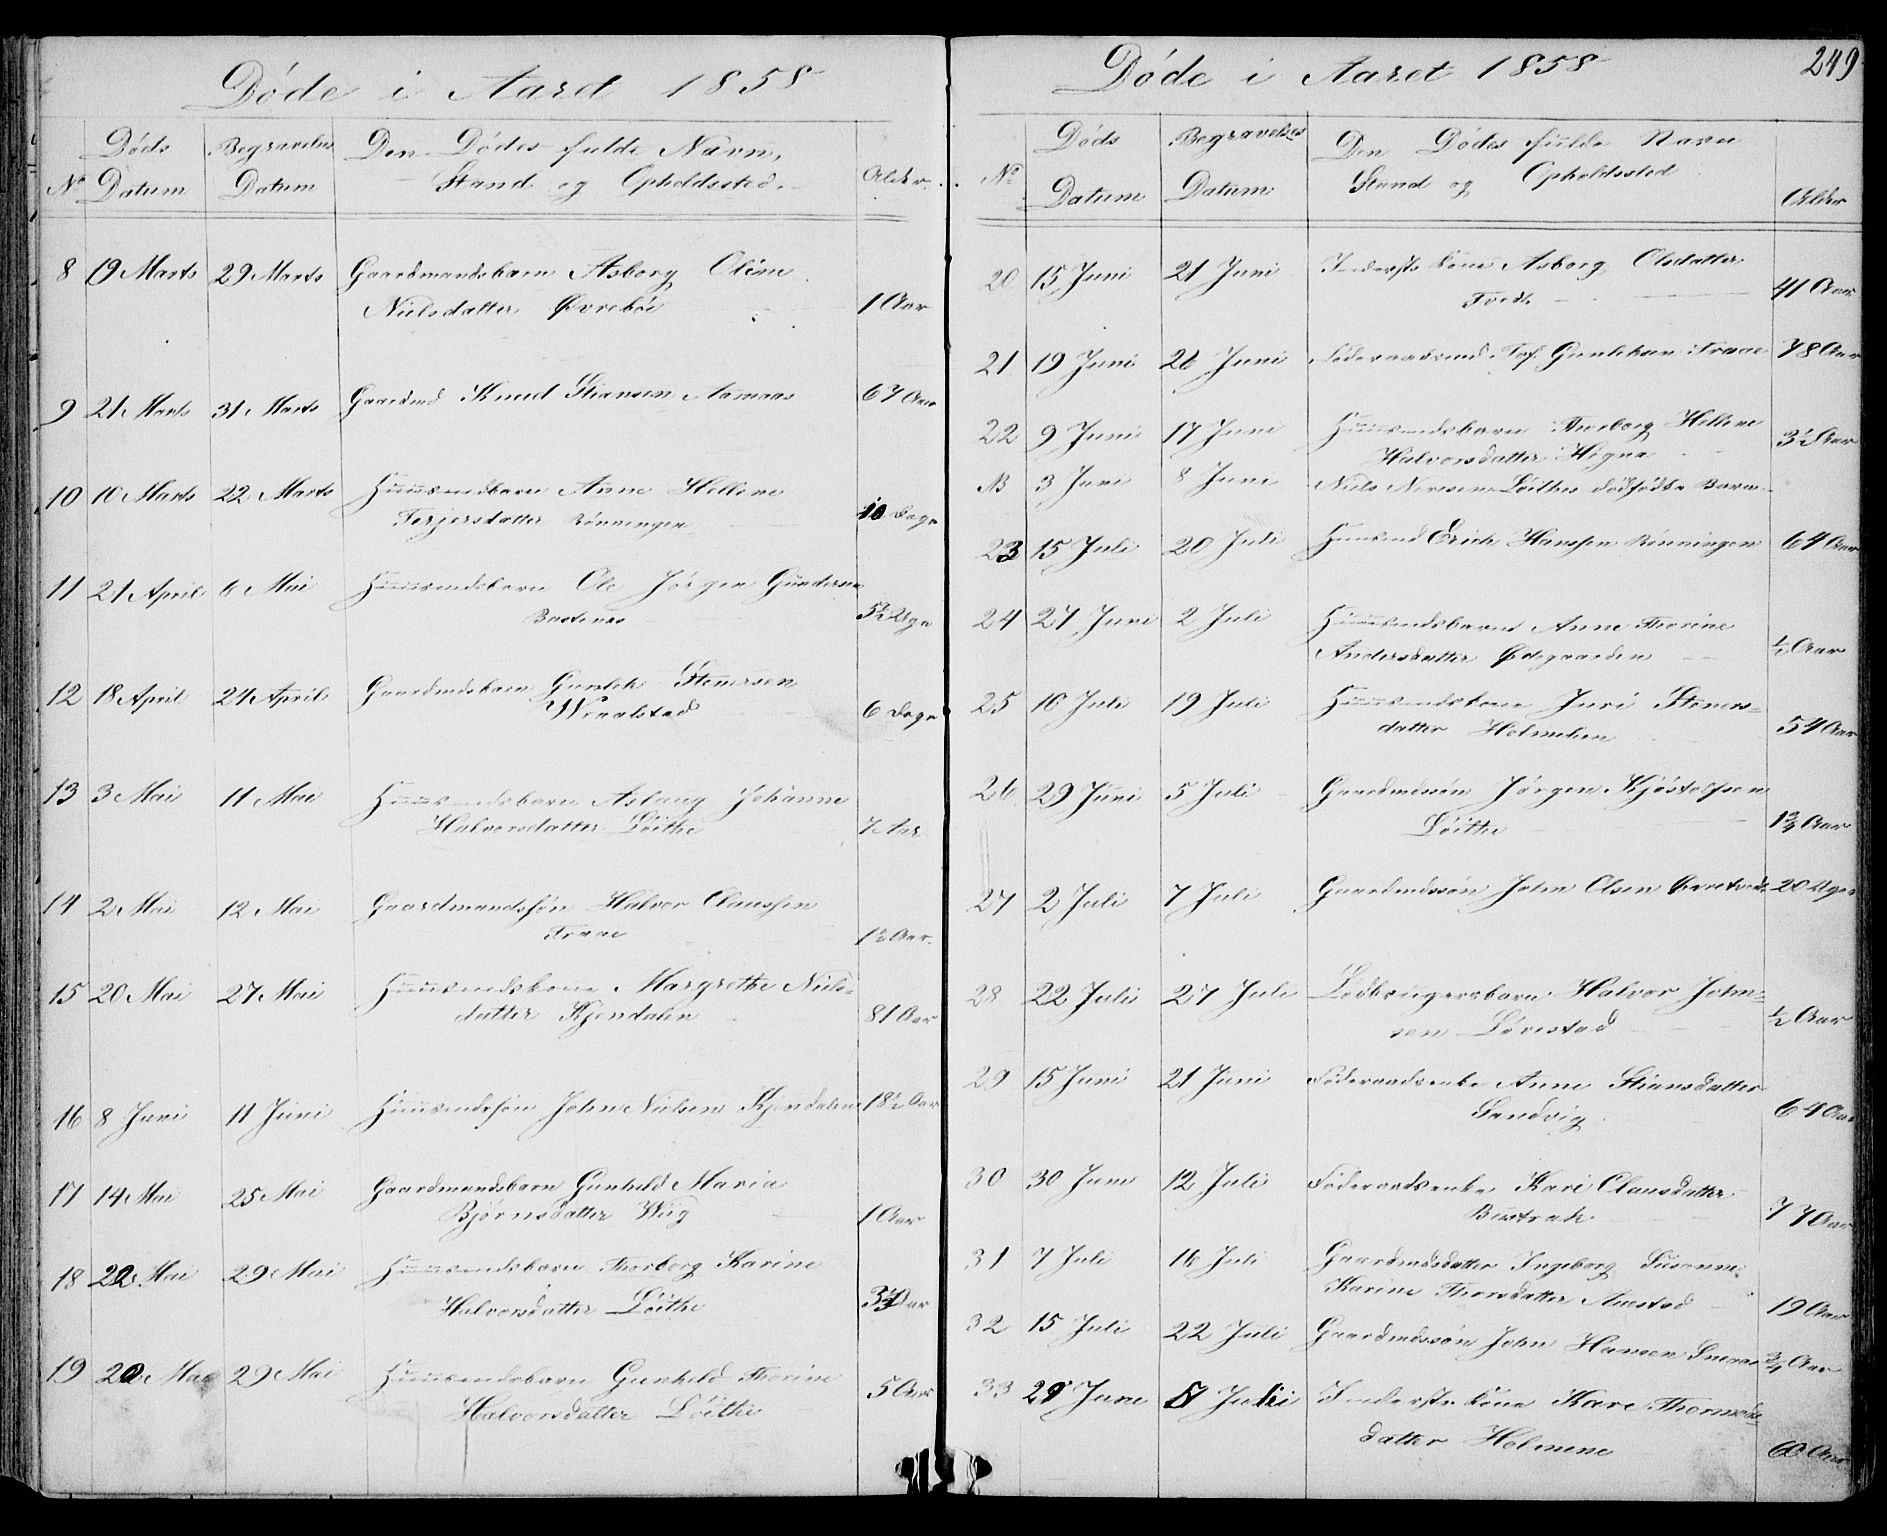 Døde i Aaret 1858
No
Døds Datum
Begravelses Datum
Den Dødes fulde Navn,
Stand og Opholdssted.
Alder
8 19 Marts 29 Marts Gaardmandsbarn Asborg Oline
Nielsdatter Øvrebøe 1 Aar
9 21 Marts 31 Marts Gaardmd Knud Stiansen Aamaas 67 Aar
10 10 Marts 22 Marts Huusmdsbarn Anne Hellene
Terjersdatter Rønningen 10 Dage
11 21 April 6 Mai Huusmdsbarn Ole Jørgen Gunders
Bastenes 5½ Uge
12 18 April 24 April Gaardmdsbarn Gunlek Stenersen
Wraalstad 6 Dage
13 3 Mai 11 Mai Huusmdsbarn Aslaug Johanne
Halvorsdatter Løithe 7 Aar
14 2 Mai 12 Mai Gaardmandssøn Halvor Claussen
Traae 1½ Aar.
15 20 Mai 27 Mai Huusmdskone Margrethe Niels-
datter Kjendalen 81 Aar
16 8 Juni 11 Juni Huusmdssøn John Nielsen Kjendalen 18½ Aar
17 14 Mai 25 Mai Gaardmandsbarn Gunhild Maria
Bjørnsdatter Wiig 1 Aar
18 22 Mai 29 Mai Huusmdsbarn Thorborg Karine
Halvorsdatter Løithe Aar
19 20 Mai 29 Mai Huusmdsbarn Gunhild Thorine
Halvorsdatter Løithe 5 Aar
Døde i Aaret 1858
249
No
Døds Datum
Begravelses Datum
Den Dødes fulde Navn
Stand og Opholdssted
Alder
20 15 Juni 21 Juni Inderste Kone Asborg Olsdatter
Tvedt 41 Aar
21 19 Juni 26 Juni Føderaadsmd Gunleksen Traae 78 Aar
22 9 Juni 17 Juni Huusmdsbarn Thorborg Hellene
Halvorsdatter Høgna 3½ Aar
NB 3 Juni 8 Juni Niels Løithes dødfødte Barn
23 15 Juli 20 Juli Huusmd Erich Hanssen Rønningen 64 Aar
24 27 Juni 2 Juli Huusmdsbarn Anne Thorine
Andersdatter Ødegaarden ½ Aar
25 10 Juli 19 Juli Huusmdskone Juri Steners-
datter Holmelien 54 Aar
26 29 Juni 5 Juli Gaardmdssøn Jørgen Kjøstolfsen
Løithe 1¾ Aar
27 2 Juli 7 Juli Gaardmdssøn John Olsen 20 Uger
28 22 Juli 27 Juli Halvor John-
sen Lørestad ½ Aar
29 15 Juni 21 Juni Føderaadsenke Anne Stiansdatter
Sandvig 64 Aar
30 30 Juni 12 Juli Føderaadsenke Kari Clausdatter
Bustrak 77 Aar
31 7 Juli 16 Juli Gaardmdsdatter Ingeborg Susanne
Karine Thorsdatter Aaestad 19 Aar
32 15 Juli 22 Juli Gaardmdssøn John Hansen ¾ Aar
33 29 Juni 8 Juli Inderste Kone Kare Thormods-
datter Holmene 60 Aar